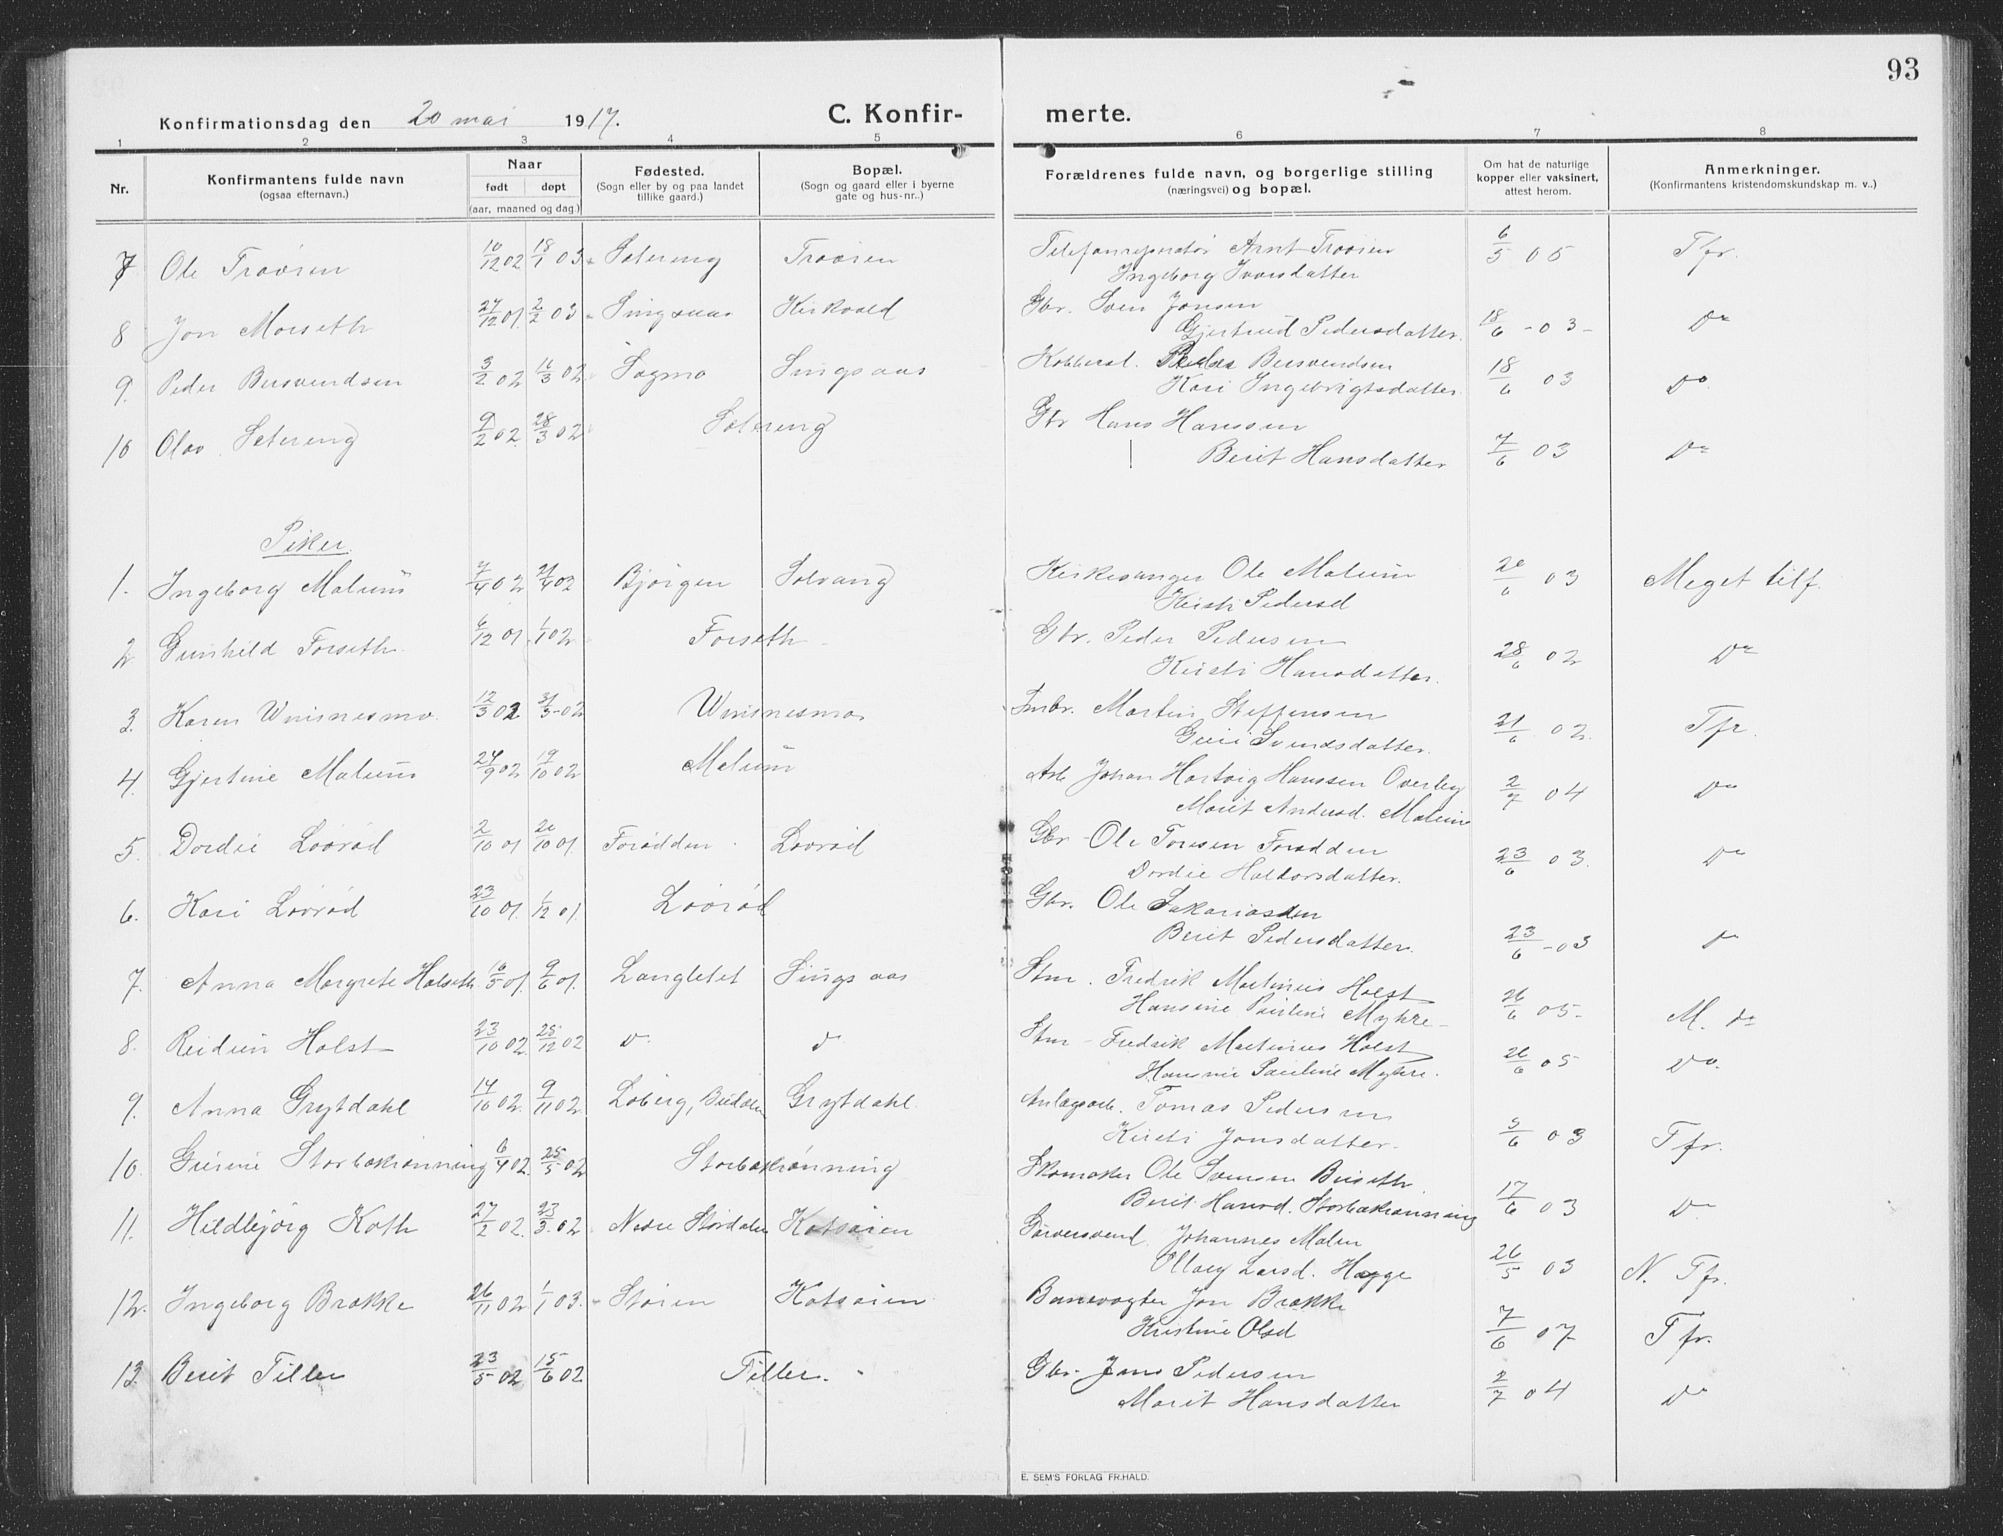 93
Konfirmationsdag den 20 mai 1917. C. Konfirmerte.
1 2 3 4 5 6 7 8
Nr. Konfirmantens fulde navn (ogsaa efternavn.) Naar født døpt (aar, maaned og dag.) Fødested. (Sogn eller by og paa landet tillike gaard.) Bopæl. (Sogn og gaard eller i byerne gate og hus-nr..) Forældrenes fulde navn, og borgerlige stilling (næringsvei) og bopæl. Om hat de naturlige kopper eller vaksinert, attest herom. Anmerkninger. (Konfirmantens kristendomskundskap m. v..)
7 Ole Trøøien 10/12 02 18/1 03 Setereng Trøøien Telefonreparatør Arnt Trøøien 6/5 05 Tfr.
Ingeborg Iversdatter
8 Jon Moseth 27/12 01. 2/2 03 Singsaas Kirkvold Gbr. Sven Jonsen 18/6 - 03 - Do
Gjertrud Pedersdatter.
9. Peder Busvendsen 3/2 02 16/3 02 Sagmo Singsaas Peder Busvendsen 18/6 03 Do.
Kari Ingebrigtsdatter
10 Olav Setereng 9/2 02. 28/3 02 Setereng Gbr Hans Hanssen 7/6 03 Do
Berit Hansdatter
Piker.
1. Ingeborg Malum 7/4 02 21/4 02 Bjørgen Solvang Kirkesanger Ole Malum 20/6 03 Meget tilf.
Kirsti Pedersd
2 Gunhild Forseth. 6/12 01. 1/1 02. Forseth Gbr. Peder Pedersen 28/6 02 Do
Kirsti Hansdatter.
3. Karen Winsnesmo. 12/3 02 31/3 - 02 Winsnesmo Martin Steffensen 21/6 02. Tfr.
Guri Svendsdatter.
4. Gjertine Malum 24/9 02 19/10 02 Malum Arb Johan Hartvig Hanssen Overleg 2/7 04 Do
Marit Andersd. Malum
5. Dordie Løvrød 2/10 01 20/10 01. Forødden Løvrød Gbr - Ole Toresen Forødden 23/6 03. Do
Dordie Haldorsdatter.
6. Kari Løvrød 23/10 01. 1/12 01. Løvrød Gbr. Ole Sakariassen 23/6 - 03 D
Berit Pedersdatter.
7. Anna Margrete Holseth 16/5 01. 9/6 01. Langletet Singsaas Stm. Fredrik Martinus Holst 26/6 05 - M. do
Hansine Pauline Myhre -
8. Reidun Holst 23/10 02. 25/12 02 D. D Stm - Fredrik Martinus Holst 26/6 05 Do.
Hansine Pauline Myhre.
9. Anna Grytdahl 14/10 02. 9/11 02. Løberg, Budalen Grytdahl. Anlægsarb. Tomas Pedersen 5/6 03 Tfr.
Kirsti Jonsdatter.
10. Gurine Storbækrønning 6/4 02. 25/5 02 Storbækrønning Skomaker Ole Svensen Buseth 17/6 03 D
Berit Hansd. Storbækrønning
11. Hildbjørg Koth 27/2 02. 23/3. 02 Nedre Stördalen Kotsøien Garversvend. Johannes Malen 26/5 03 N. Tfr.
Larsd. Hagge
12. Ingeborg Brække 26/11 02 1/1 03. Støren Kotsøien Banevogter Jon Brække 7/6 07 Tfr.
Kristine Olsd
13. Berit Tiller 23/5 02 15/6 02 Tiller. Gbr. Jens Pedersen 2/7 04 Do
Marit Hansdatter
E. SEM'S FORLAG FR.HALD.